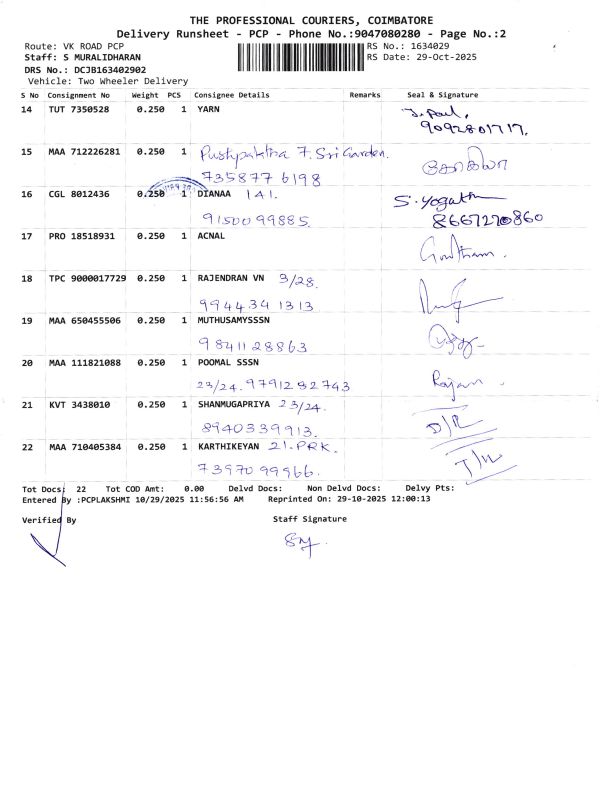 THE PROFESSIONAL COURIERS, COIMBATORE
Delivery Runsheet - PCP - Phone No.:9047080280 - Page No.:2
Route: VK ROAD PCP
RS No.: 1634029
Staff: S MURALIDHARAN
RS Date: 29-Oct-2025
DRS No.: DCJB163402902
Vehicle: Two Wheeler Delivery
S No Consignment No Weight PCS Consignee Details Remarks Seal & Signature
14 TUT 7350528 0.250 1 YARN J. Paul,
9092801717.
15 MAA 712226281 0.250 1 7. Sri Garden.
735877 6198 கோகிலா
16 CGL 8012436 0.250 1 DIANAA 141. S. Yogath
9150099885. 8667270860
17 PRO 18518931 0.250 1 ACNAL Goutham.
18 TPC 9000017729 0.250 1 RAJENDRAN VN 3/28.
994434 1313
19 MAA 650455506 0.250 1 MUTHUSAMYSSSN
9841128863
20 MAA 111821088 0.250 1 POOMAL SSSN Rajam.
23/24. 9791292743
21 KVT 3438010 0.250 1 SHANMUGAPRIYA 23/24.
8940339913. D/R
22 MAA 710405384 0.250 1 KARTHIKEYAN 21.PRK.
73970 99966.
Tot Docs: 22 Tot COD Amt: 0.00 Delvd Docs: Non Delvd Docs: Delvy Pts:
Entered By :PCPLAKSHMI 10/29/2025 11:56:56 AM Reprinted On: 29-10-2025 12:00:13
Verified By Staff Signature